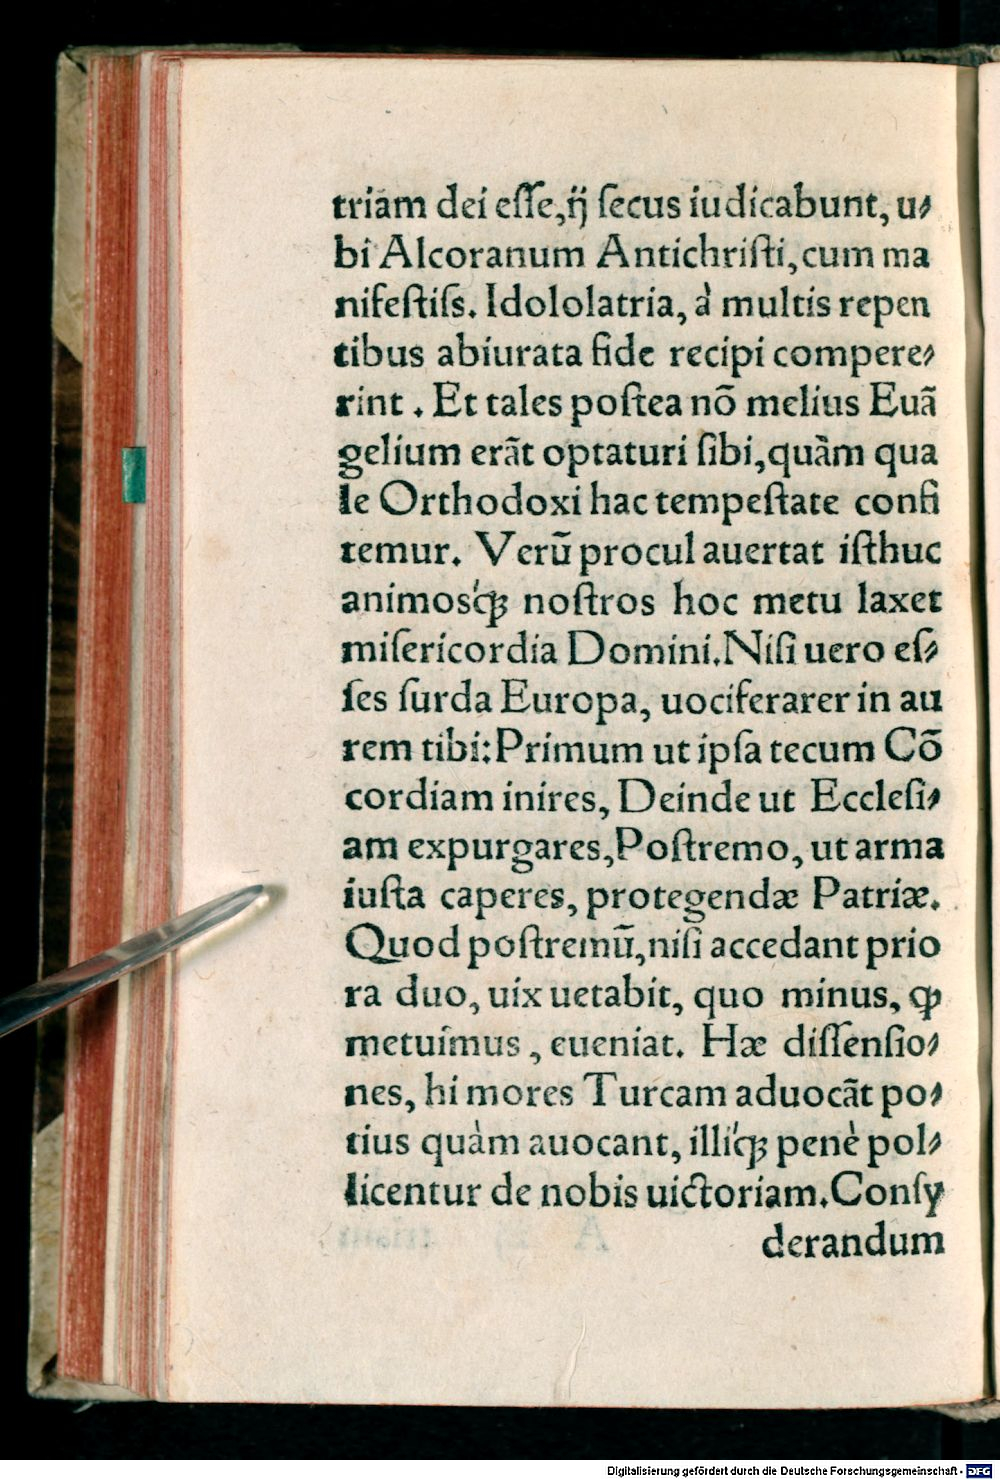 triam dei esse, ij secus iudicabunt, u⸗
bi Alcoranum Antichristi, cum ma
nifestiss. Idololatria, à multis repen
tibus abiurata fide recipi compere⸗
rint. Et tales postea nō melius Euā
gelium erāt optaturi sibi, quàm qua
le Orthodoxi hac tempestate confi
temur. Verū procul auertat isthuc
animosq́ꝫ nostros hoc metu laxet
misericordia Domini. Nisi uero es⸗
ses surda Europa, uociferarer in au
rem tibi: Primum ut ipsa tecum Cō
cordiam inires, Deinde ut Ecclesi⸗
am expurgares, Postremo, ut arma
iusta caperes, protegendæ Patriæ.
Quod postremū, nisi accedant prio
ra duo, uix uetabit, quo minus, ꝙ
metuimus, eueniat. Hæ dissensio⸗
nes, hi mores Turcam aduocāt po⸗
tius quàm auocant, illiq́ꝫ penè pol⸗
licentur de nobis uictoriam. Consy
derandum
Digitalisierung gefördert durch die Deutsche Forschungsgemeinschaft - DFG